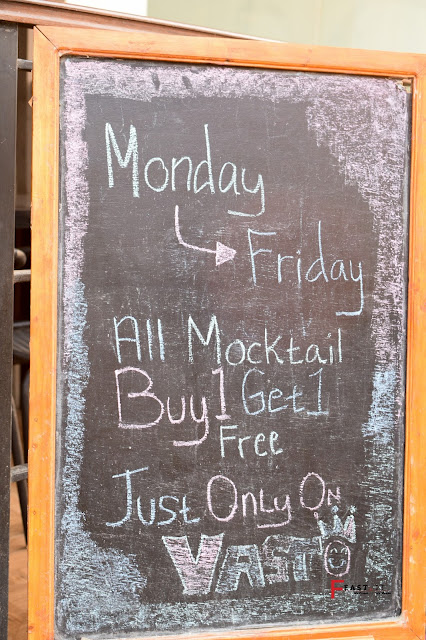 Monday
Friday
All Mocktail
Buy 1 Get 1
Free
Just Only On
VASTO